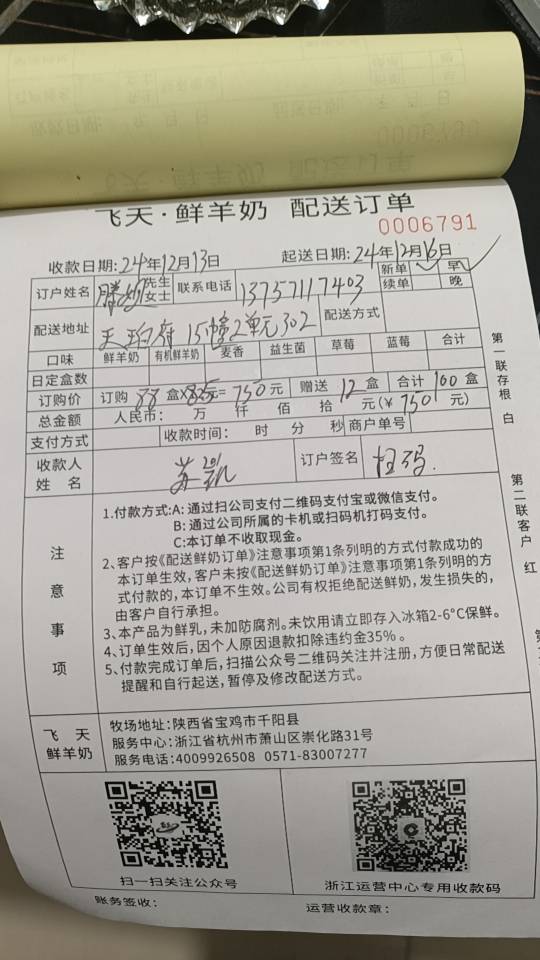 飞天·鲜羊奶 配送订单
0006791
收款日期:24年12月13日 起送日期:24年12月16日
订户姓名 先生 女士 联系电话 13757117403 新单 ✓ 早 ✓
续单 晚
配送地址 天珀府15幢2单元302 配送方式
口味 鲜羊奶 有机鲜羊奶 麦香 益生菌 草莓 蓝莓 合计
日定盒数
订购价 订购 88 盒X 元= 750 元 赠送 12 盒 合计 100 盒
总金额 人民币: 万 仟 佰 拾 元(¥ 750 元)
支付方式 收款时间: 时 分 秒 商户单号
收款人姓名 苏凯 201 订户签名 扫码
第一联存根 白
第二联客户 红
注意事项
1.付款方式:A: 通过扫公司支付二维码支付宝或微信支付。
B: 通过公司所属的卡机或扫码机打码支付。
C:本订单不收取现金。
2、客户按《配送鲜奶订单》注意事项第1条列明的方式付款成功的
本订单生效,客户未按《配送鲜奶订单》注意事项第1条列明的方
式付款的,本订单不生效。公司有权拒绝配送鲜奶,发生损失的,
由客户自行承担。
3、本产品为鲜乳,未加防腐剂。未饮用请立即存入冰箱2-6°C保鲜。
4、订单生效后,因个人原因退款扣除违约金35%。
5、付款完成订单后,扫描公众号二维码关注并注册,方便日常配送
提醒和自行起送,暂停及修改配送方式。
飞天
鲜羊奶
牧场地址:陕西省宝鸡市千阳县
服务中心:浙江省杭州市萧山区崇化路31号
服务电话:4009926508 0571-83007277
扫一扫关注公众号 浙江运营中心专用收款码
账务签收: 运营收款章: